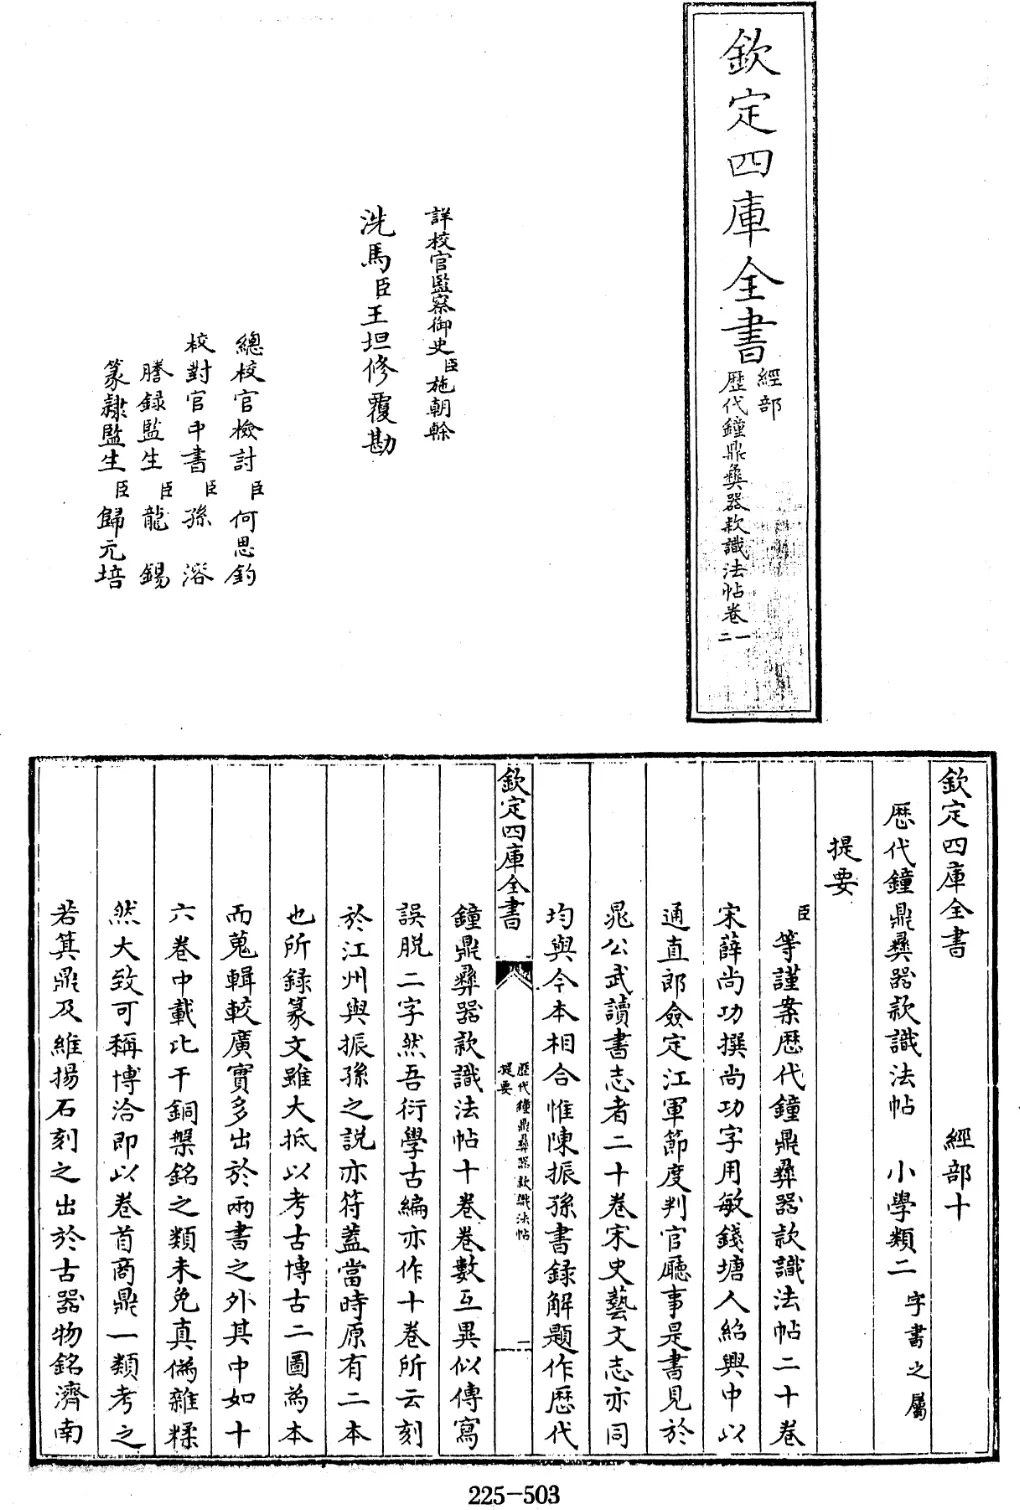 欽定四庫全書
經部
歴代鐘鼎彝器款識法帖卷一
二
詳校官監察御史臣施朝幹
洗馬臣王坦修覆勘
總校官檢討臣何思鈞
校對官中書臣孫溶
謄錄監生臣龍錫
篆隸監生臣歸元培
欽定四庫全書 經部十
歴代鐘鼎彝器款識法帖 小學類二 字書之屬
提要
臣等謹案歴代鐘鼎彝器款識法帖二十卷
宋薛尚功撰尚功字用敏錢塘人紹興中以
通直郎僉定江軍節度判官廳事是書見於
晁公武讀書志者二十卷宋史藝文志亦同
均與今本相合惟陳振孫書錄解題作歴代
欽定四庫全書
歴代鐘鼎彝器款識法帖
提要
一
鐘鼎彝器款識法帖十卷卷數互異似傳寫
誤脱二字然吾衍學古編亦作十卷所云刻
於江州與振孫之説亦符蓋當時原有二本
也所錄篆文雖大抵以考古博古二圖為本
而蒐輯較廣實多出於兩書之外其中如十
六卷中載比干銅槃銘之類未免真偽雜糅
然大致可稱博洽即以卷首商鼎一類考之
若箕鼎及維揚石刻之出於古器物銘濟南
225-503